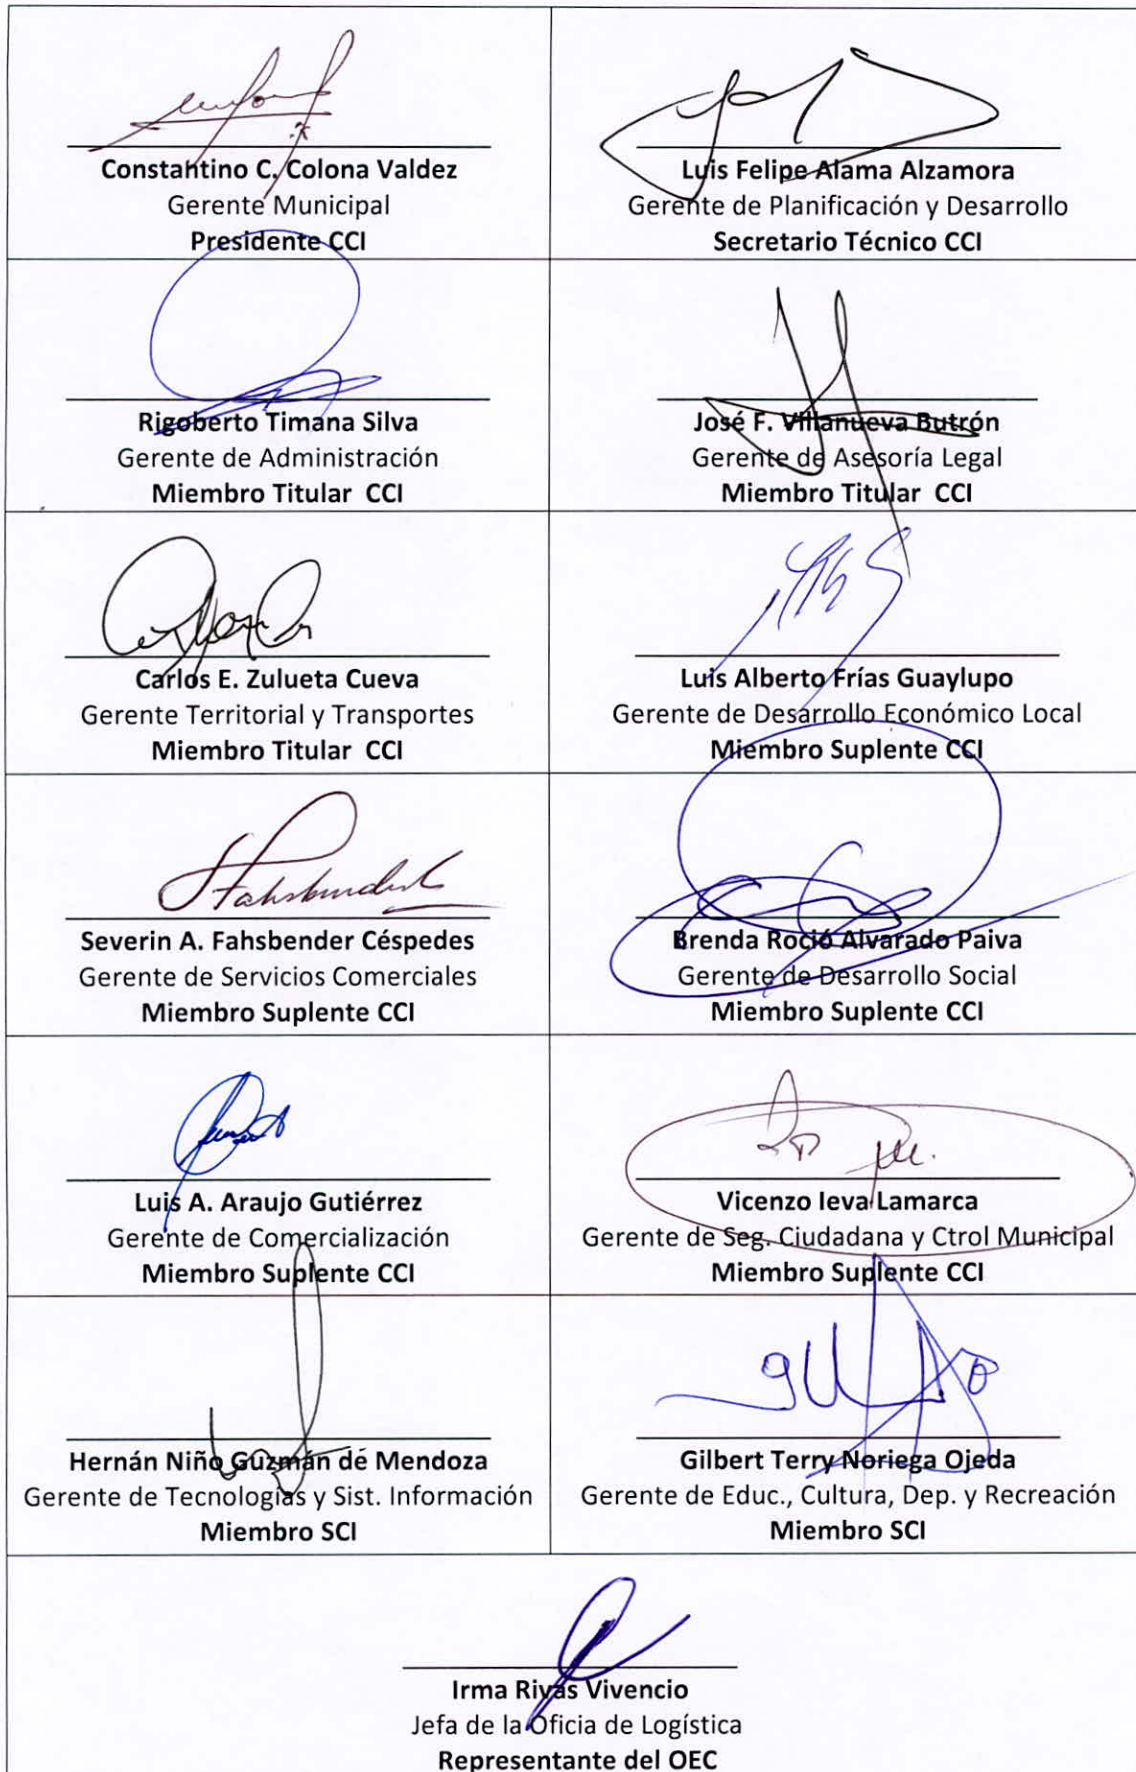 Constantino C. Colona Valdez
Gerente Municipal
Presidente CCI
Luis Felipe Alama Alzamora
Gerente de Planificación y Desarrollo
Secretario Técnico CCI
Rigoberto Timana Silva
Gerente de Administración
Miembro Titular CCI
José F. Villanueva Butrón
Gerente de Asesoría Legal
Miembro Titular CCI
Carlos E. Zulueta Cueva
Gerente Territorial y Transportes
Miembro Titular CCI
Luis Alberto Frías Guaylupo
Gerente de Desarrollo Económico Local
Miembro Suplente CCI
Fahsbender
Severin A. Fahsbender Céspedes
Gerente de Servicios Comerciales
Miembro Suplente CCI
Brenda Roció Alvarado Paiva
Gerente de Desarrollo Social
Miembro Suplente CCI
Luis A. Araujo Gutiérrez
Gerente de Comercialización
Miembro Suplente CCI
Vicenzo Ieva Lamarca
Gerente de Seg. Ciudadana y Ctrol Municipal
Miembro Suplente CCI
Hernán Niño Guzmán de Mendoza
Gerente de Tecnologías y Sist. Información
Miembro SCI
Gilbert Terry Noriega Ojeda
Gerente de Educ., Cultura, Dep. y Recreación
Miembro SCI
Irma Rivas Vivencio
Jefa de la Oficia de Logística
Representante del OEC